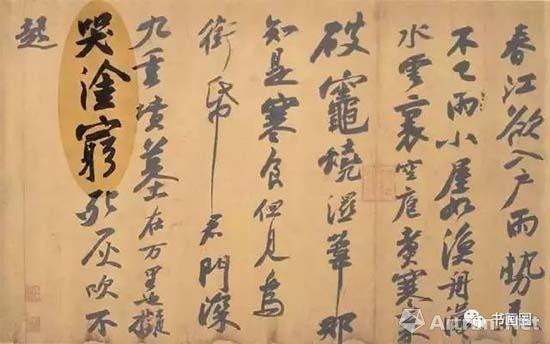 春江欲入户雨勢来
不已雨小屋如漁舟濛〻
水雲裏空庖煮寒菜
破竈燒濕葦那
知是寒食但見烏
銜帋君門深
九重墳墓在万里也擬
哭塗窮死灰吹不
起
书画圈
Artron.Net